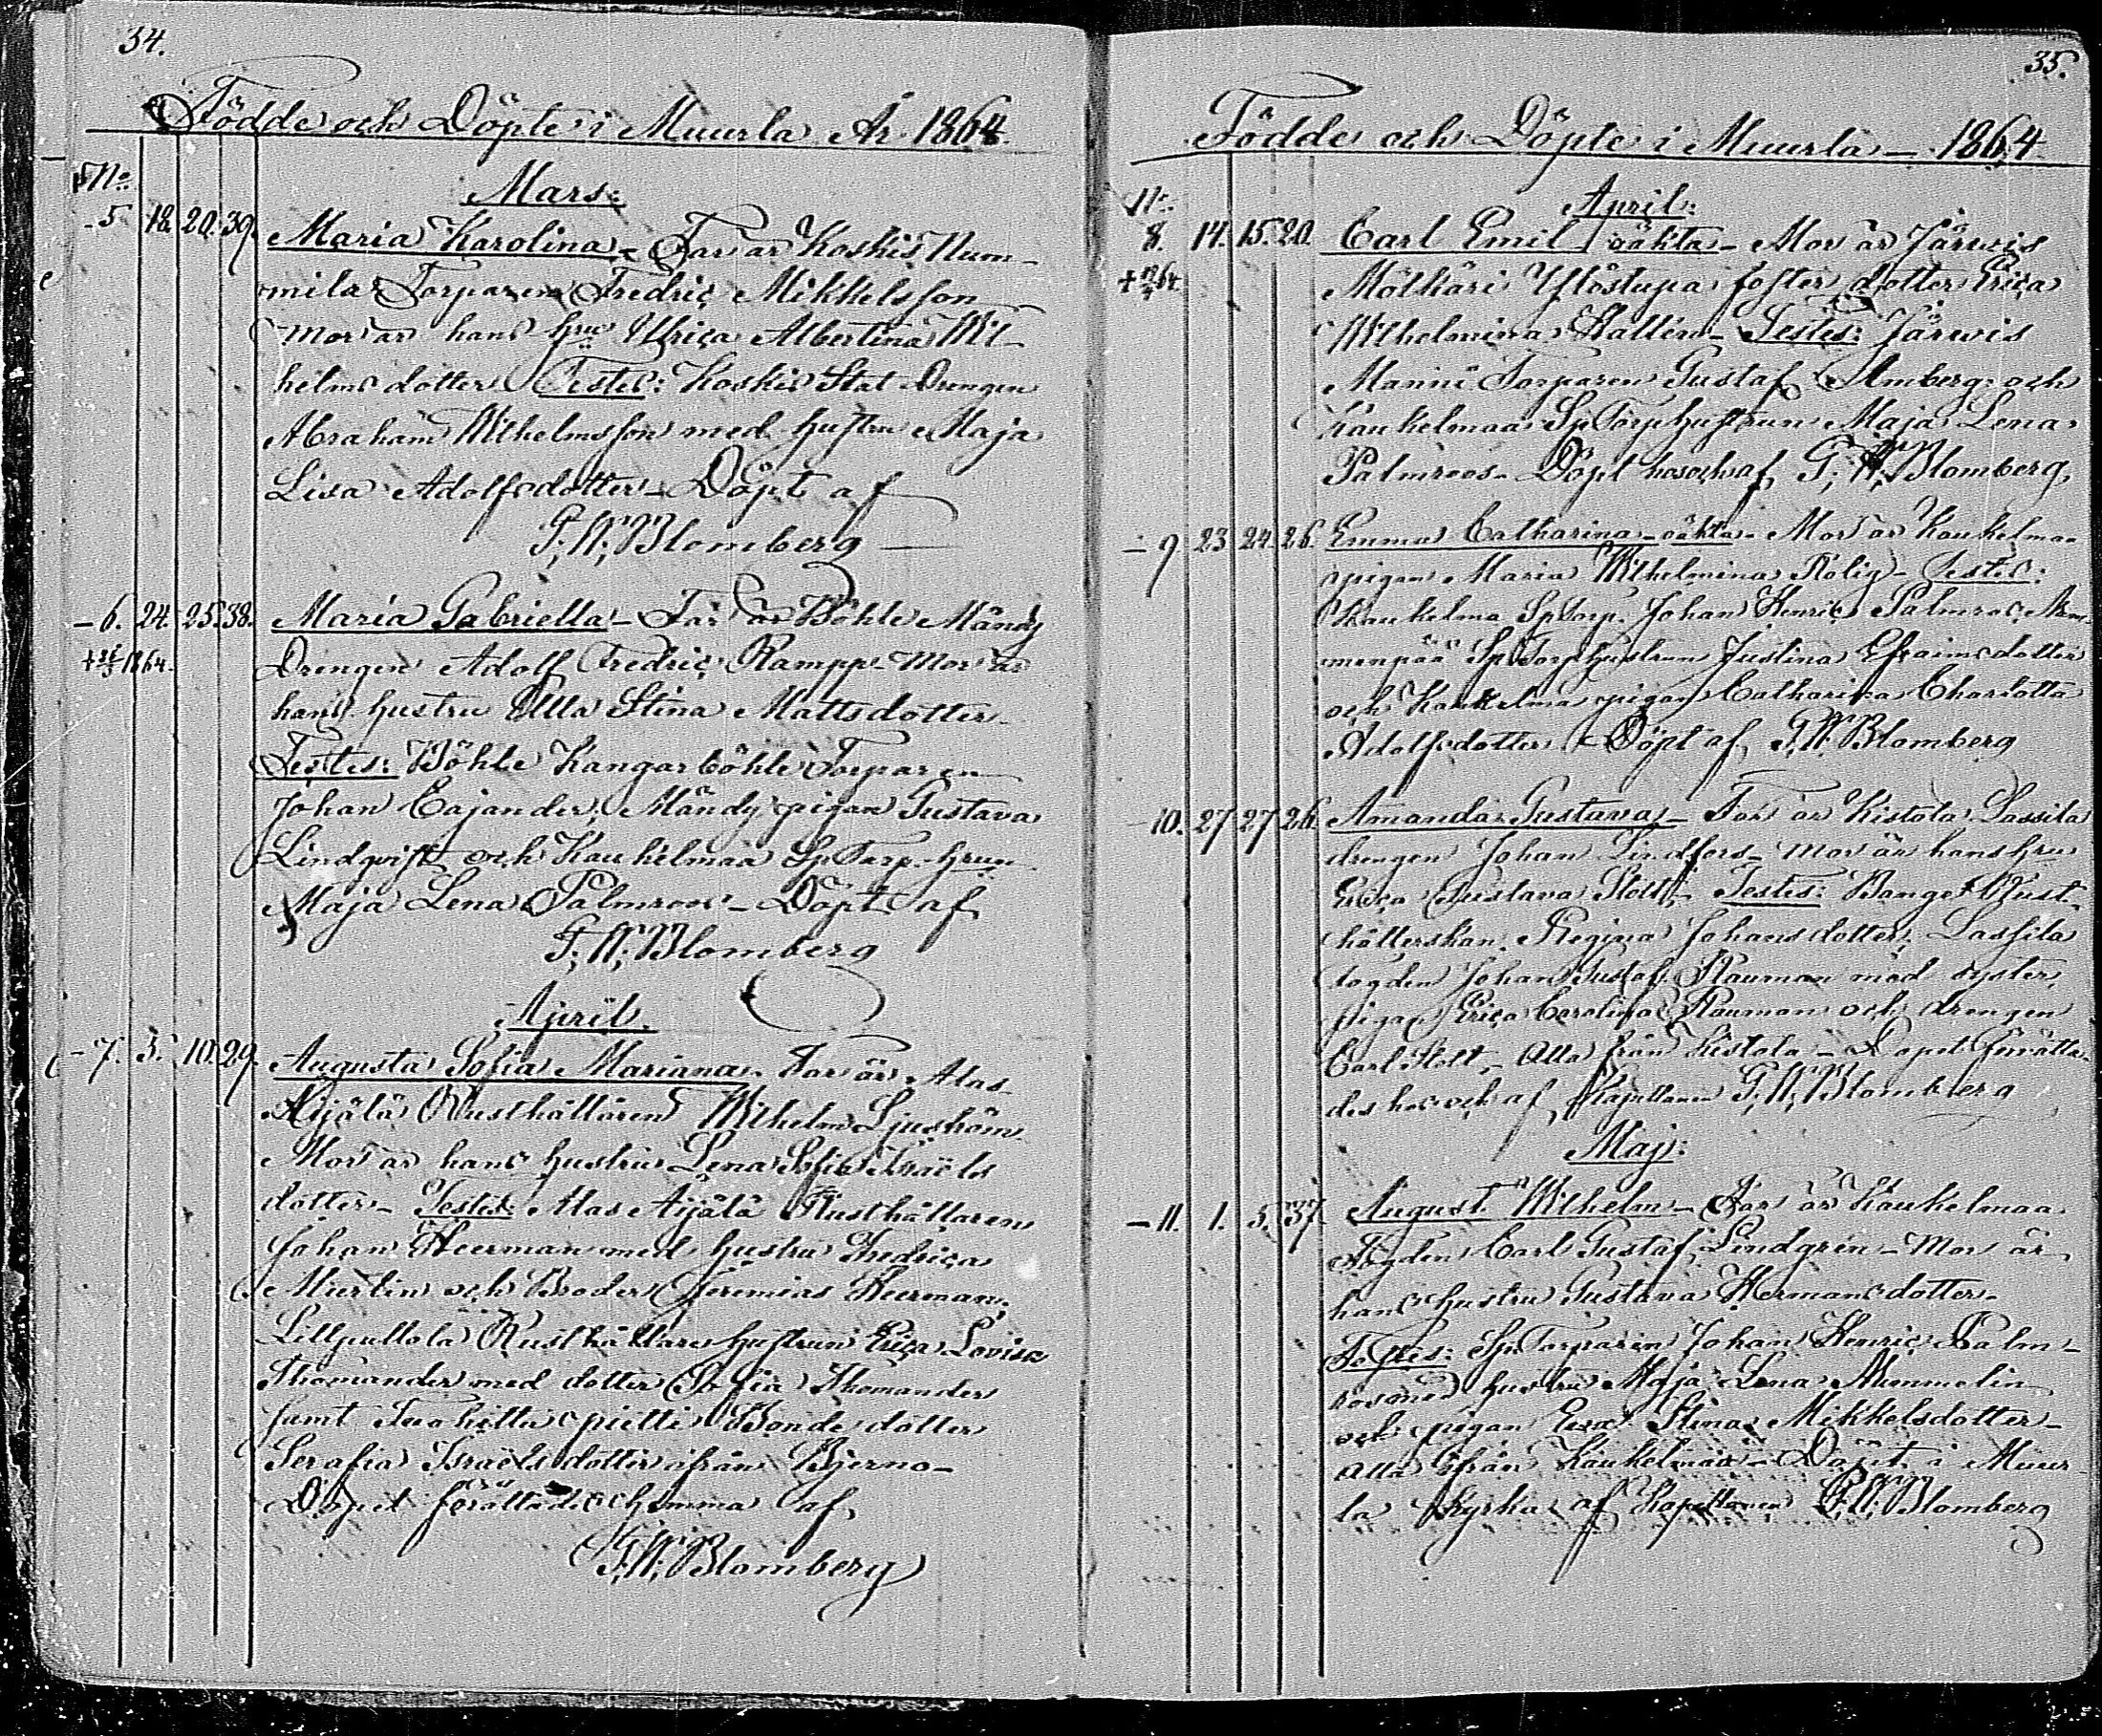 34.
Födde och Döpte i Muurla År 1864.
No.
Mars:
5 18. 20. 39. Maria Karolina - Far är Koskis Num-
mila Torparen Fredric Mikkelsson
Mor är hans hru Ulrica Albertina Wil-
helms dotter Testes: Koskis Stat Drengen
Abraham Wilhelmsson med hustru Maja
Lisa Adolfsdotter - Döpt af
G. W. Blomberg
- 6. 24. 25. 38. Maria Gabriella - Far är Böhle Mändy
Drengen Adolf Fredric Ramppe Mor är
hans hustru Ulla Stina Mattsdotter -
Testes: Böhle Kangarböhle Torparen
Johan Cajander, Mändy pigan Gustava
Lindqvist och Kaukelmaa Sp Torp. hrun
Maja Lena Palmroos - Döpt af
G. W. Blomberg
April.
- 7. 3. 10. 29. Augusta Sofia Mariana. Far är Alas-
Aijälä Rusthållaren Wilhelm Ljuström
Mor är hans hustru Lena Sofia Israels
dotter - Testes: Alas Aijälä Rusthållaren
Johan Heerman med hustru Fredrica
Murlin och Broder Jeremias Heerman.
Lillpullola Rusthållare hustrun Erica Lovisa
Thomander med dotter Sofia Thomander
samt pietti Bonde dotter
Serafia Israels dotter ifrån Bjerno -
Dopet förättades hemma af
G. W. Blomberg
35.
Födde och Döpte i Muurla - 1864
No.
April:
8. 14. 15. 20. Carl Emil oäkta - Mor är Järwis
Mölkäri Ylöstupa foster dotter Erica
Wilhelmina Hallen - Testes: Järwis
Manni Torparen Gustaf Almberg och
Kaukelmaa Sp Torp hustrun Maja Lena
Palmroos - Döpt hos och af G. W. Blomberg
- 9 23 24. 26. Emma Catharina - oäkta - Mor är Kaukelmaa
pigan Maria Wilhelmina Rolig - Testes:
Kaukelma Sp Torp. Johan Henric Palmros,
menpää Sp Torp hustrun Justina Efraimsdotter
och Kaukelma pigan Catharina Charlotta
Adolfsdotter - Döpt af G. W. Blomberg
10. 27 27 26. Amanda Gustava - Far är Kistola Lassila
drengen Johan Lindfors - mor är hans hru
Erica Gustava Stolt - Testes: Rust-
hållerskan Regina Johansdotter, Lassila
fogden Johan Gustaf Rauman med syster,
pigan Erica Carolina Rauman och drengen
Carl Stolt - Alla från Kistola - Dopet förätta-
des hos och af Kapellanen G. W. Blomberg
Maj:
- 11. 1. 5. 37. August Wilhelm - Far är Kaukelmaa
Fogden Carl Gustaf Lindgren - Mor är
hans hustru Gustava Hermansdotter -
Testes: Sp Torparen Johan Henric Palm-
ros med hustru Maja Lena
och pigan Eva Stina Mikkelsdotter -
Alla ifrån Kaukelmaa - Döpt i Muur-
la Kyrka af Kapellanen G. W. Blomberg